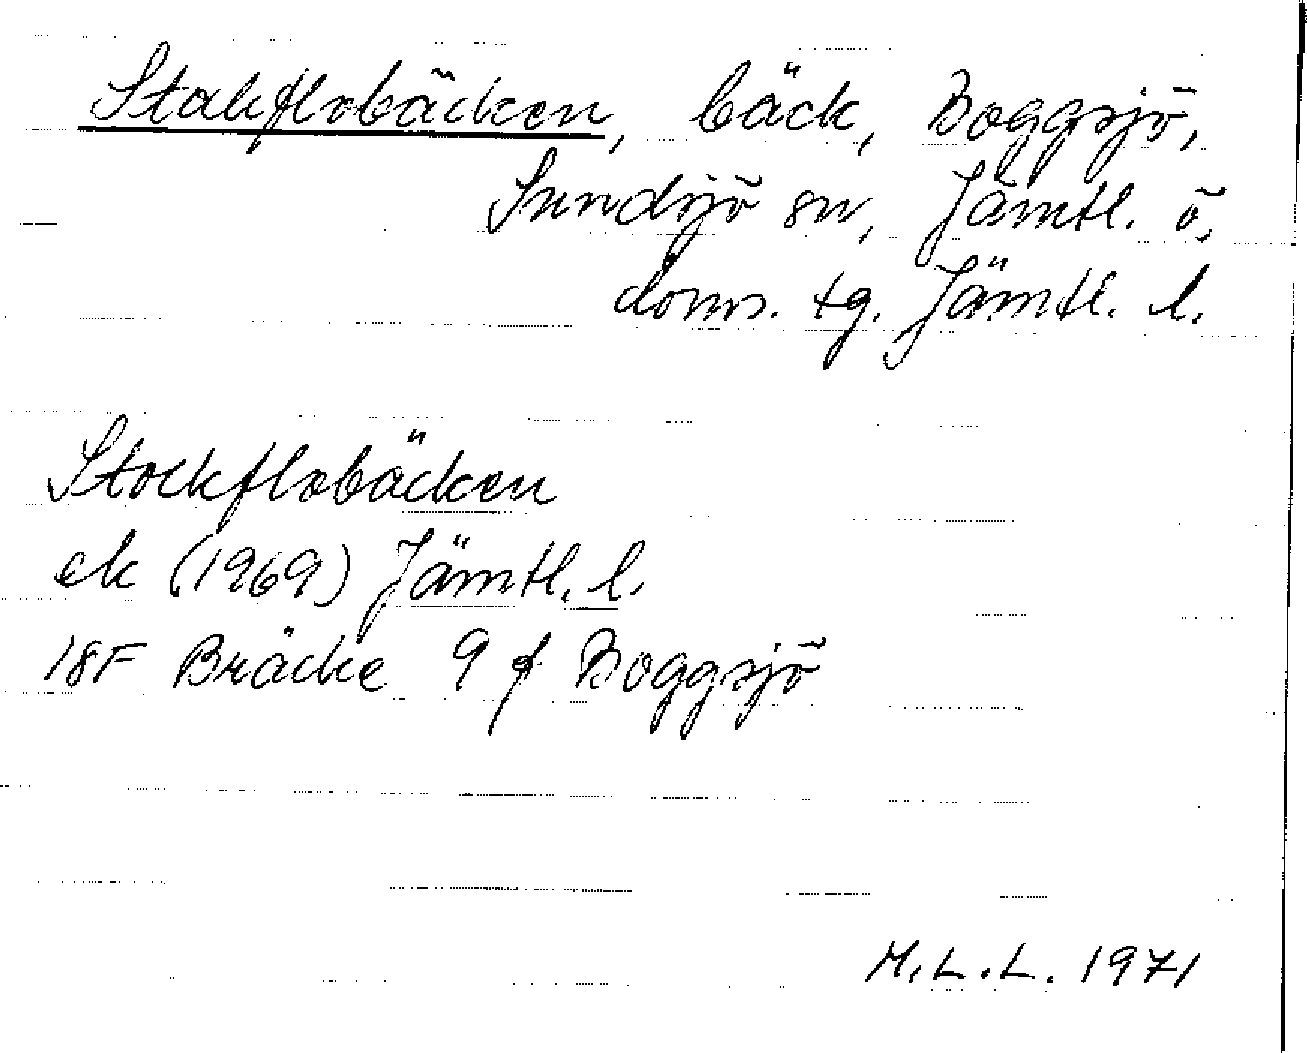 Stakflobäcken, bäck, Boggsjö,
Sundsjö sn, Jämtl. ö.
doms. tg. Jämtl. l.
Stockflobäcken
ek (1969) Jämtl. l.
18F Bräcke 9 f Boggsjö
M.L.L. 1971